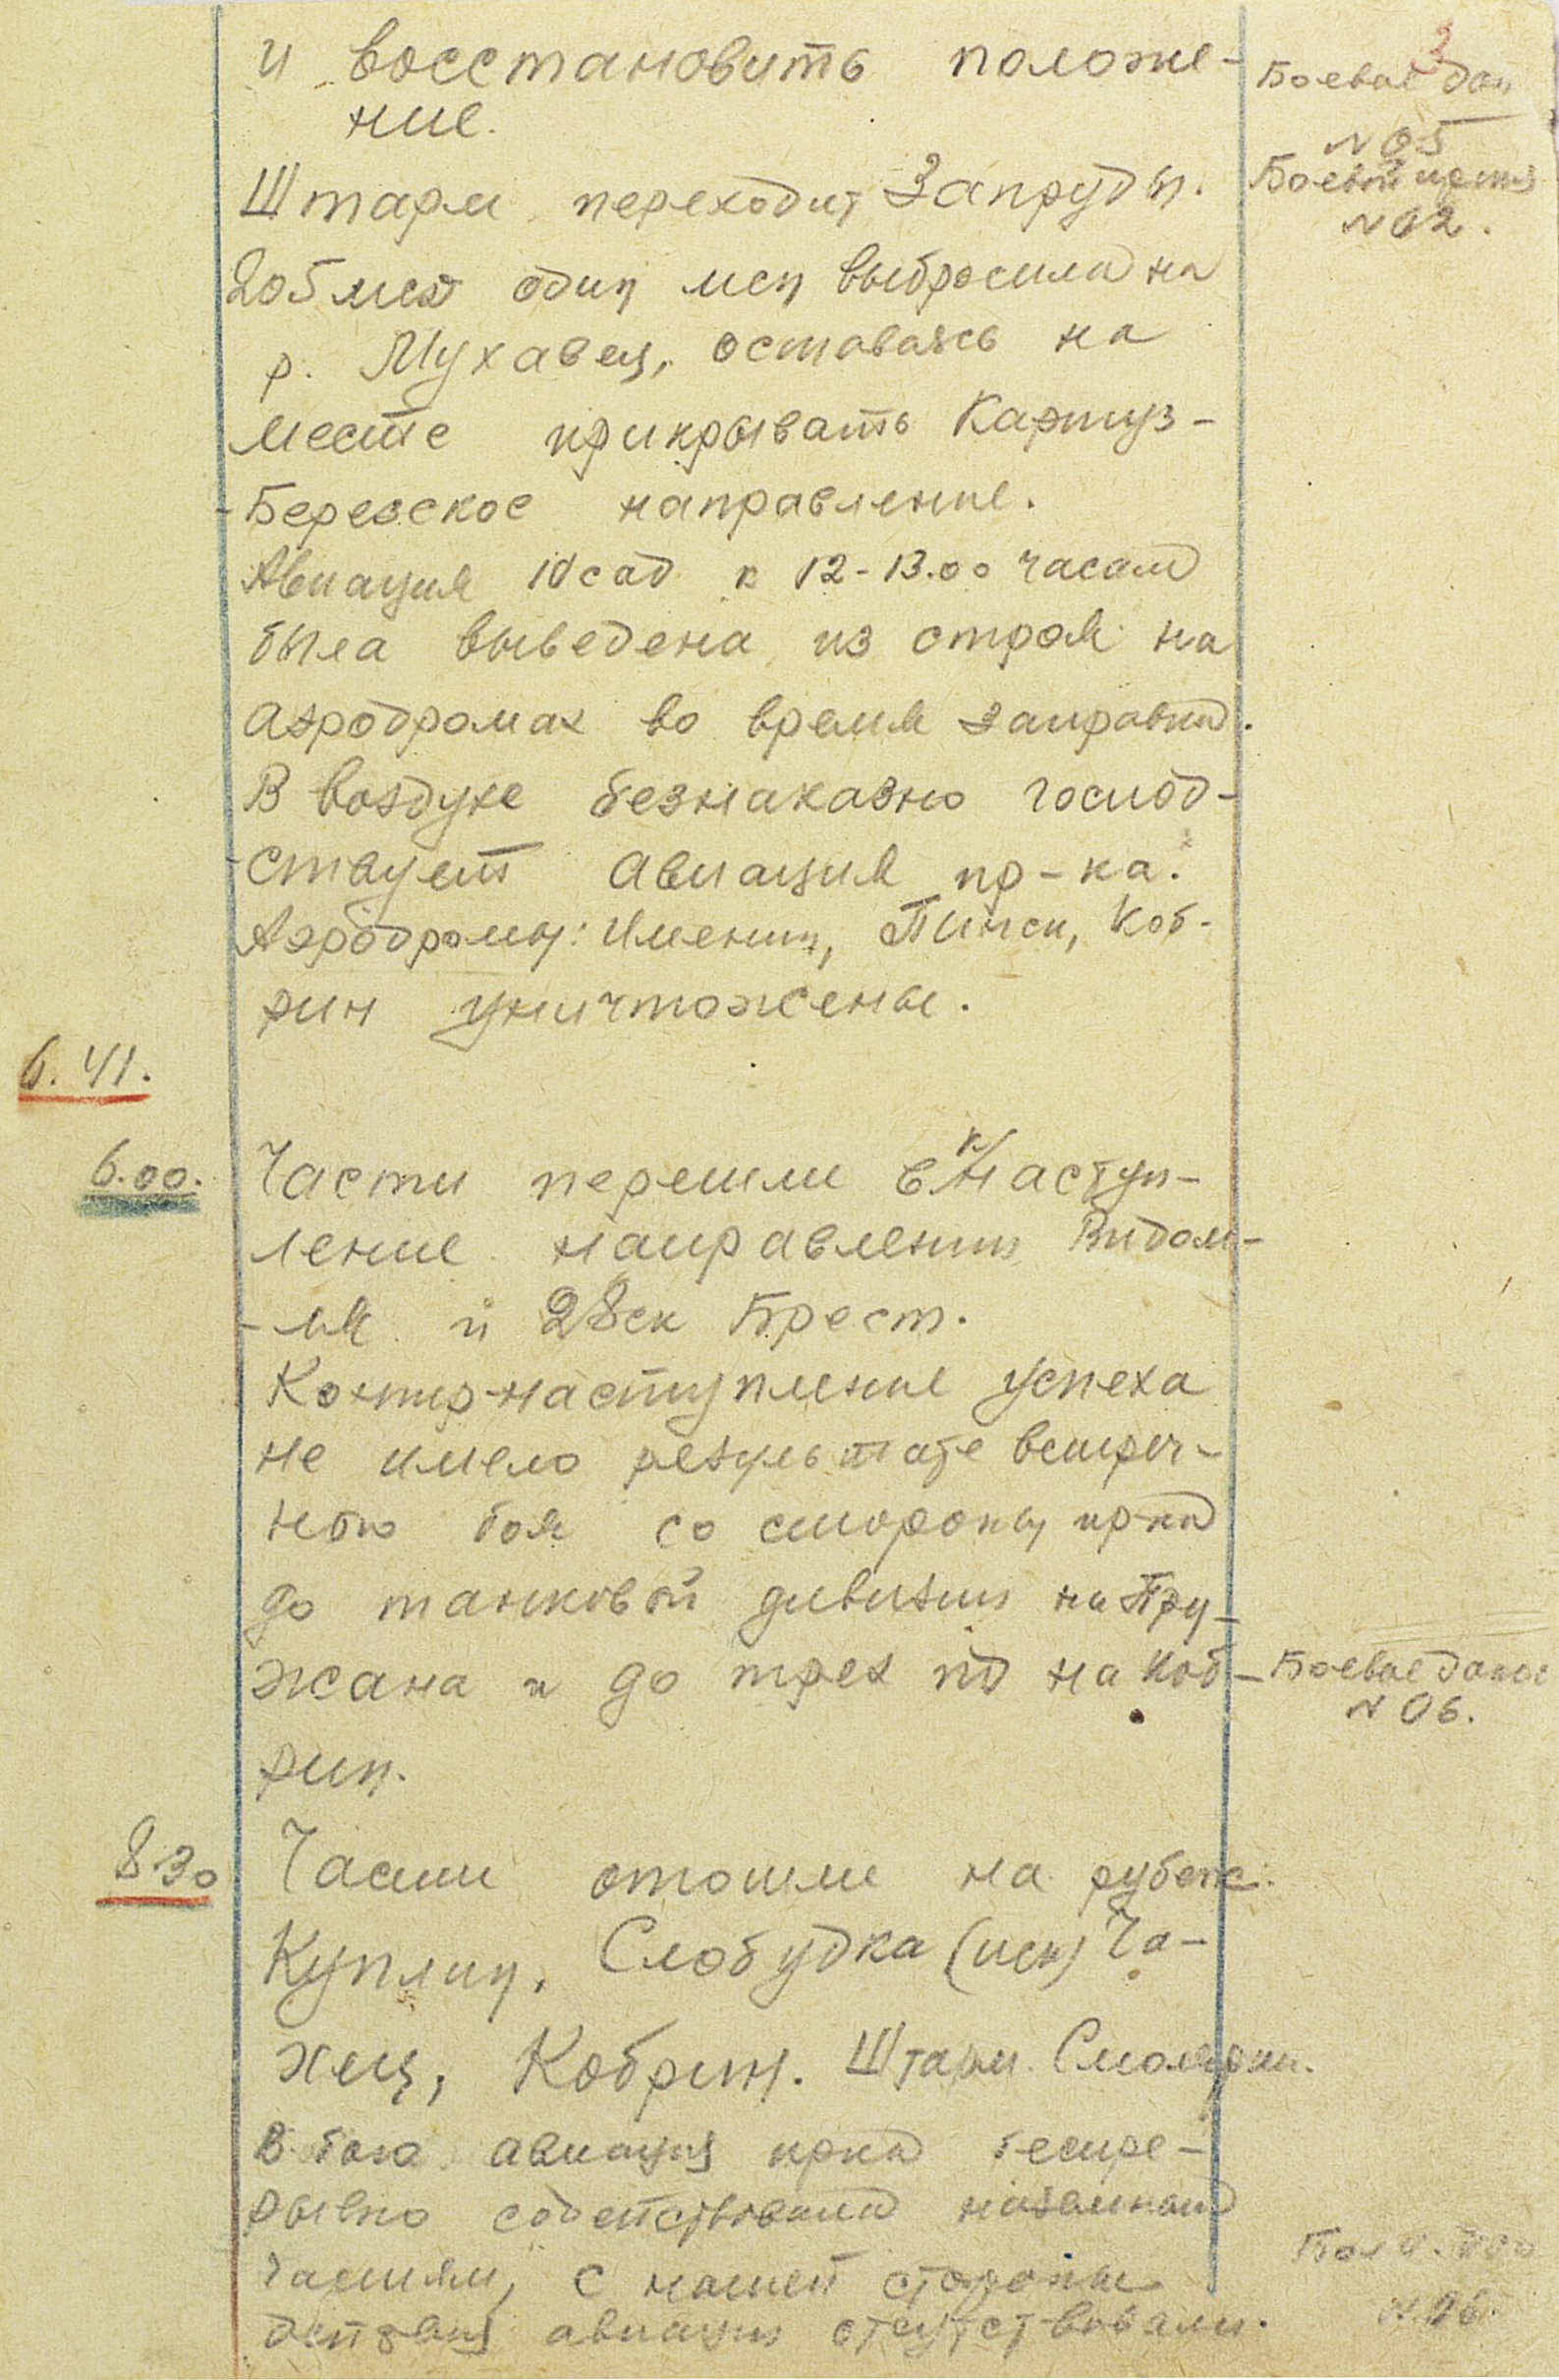 и восстановить положе-
ние.
Боевое дон
№ 05
Штарм переходит Запруды.
Боевой приказ
№ 02.
205 мсд один мсп выбросила на
р. Мухавец, оставаясь на
месте прикрывать Картуз-
-Березское направление.
Авиация 10 сад к 12-13.00 часам
была выведена из строя на
аэродромах во время заправки.
В воздухе безнаказно господ-
-ствует авиация пр-ка.
Аэродромы: Именин, Пинск, Коб-
рин уничтожены.
6. 41.
6.00.
Части перешли в к/наступ-
ление направлении Видом-
-ля и 28 ск Брест.
Контр-наступление успеха
не имело результате встреч-
ного боя со стороны пр-ка
до танковой дивизии на Пру-
жана и до трех пд на Коб-
рин.
Боевое донес
№ 06.
8.30
Части отошли на рубеж:
Куплин, Слободка (иск) Ча-
хец, Кобрин. Штарм
В бою авиация пр-ка беспре-
рывно содействовала наземным
частям, с нашей стороны
действия авиации отсутствовали.
№ 06.